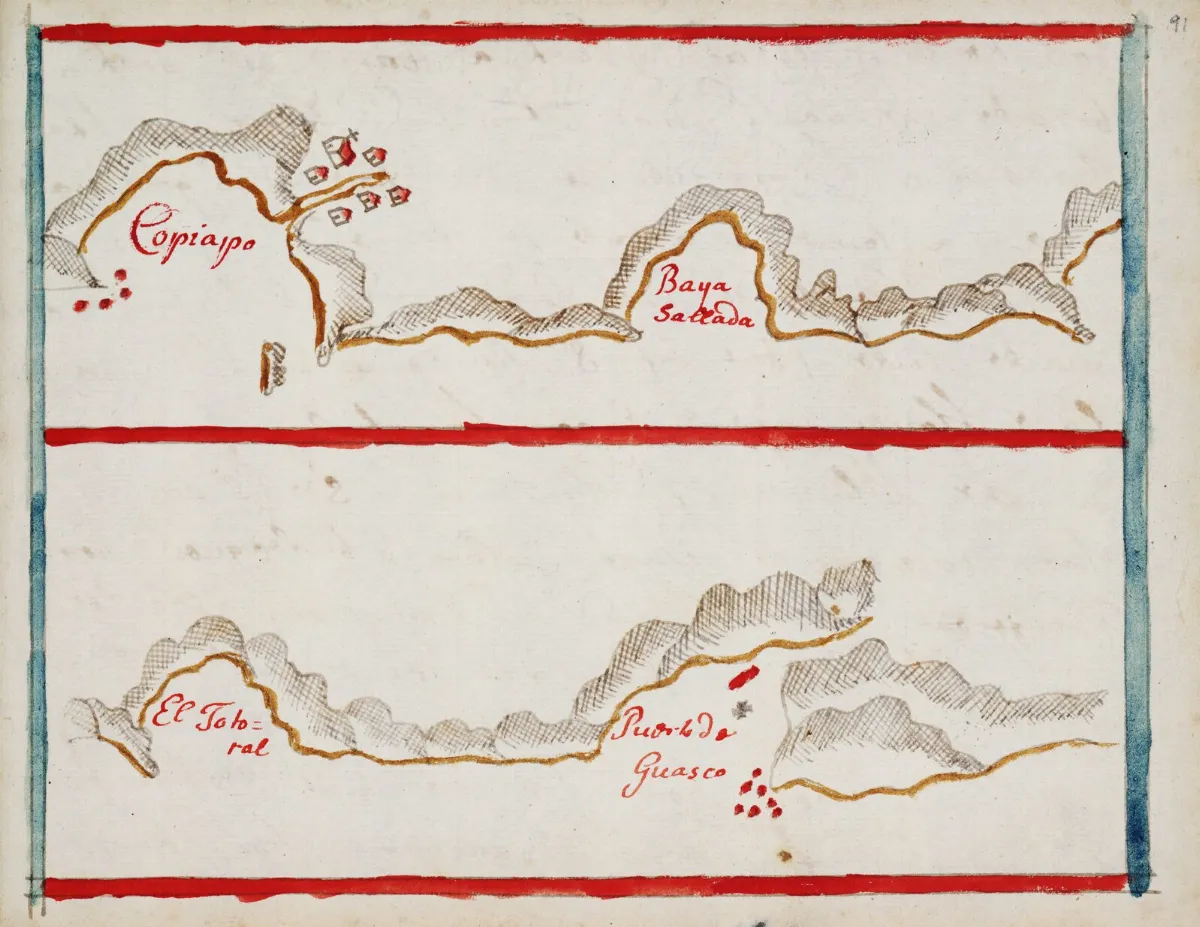 91
Copiapo
Baya
Sallada
El Toto=
ral
Puerto de
Guasco